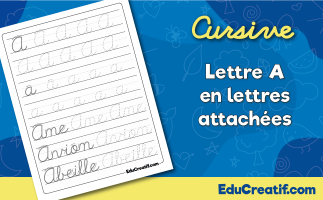 Cursive
Lettre A
en lettres
attachées
EduCreatif.com
A A A A A
a a a a a
Ame Ame Ame
Avion Avion
Abeille Abeille
EduCreatif.com